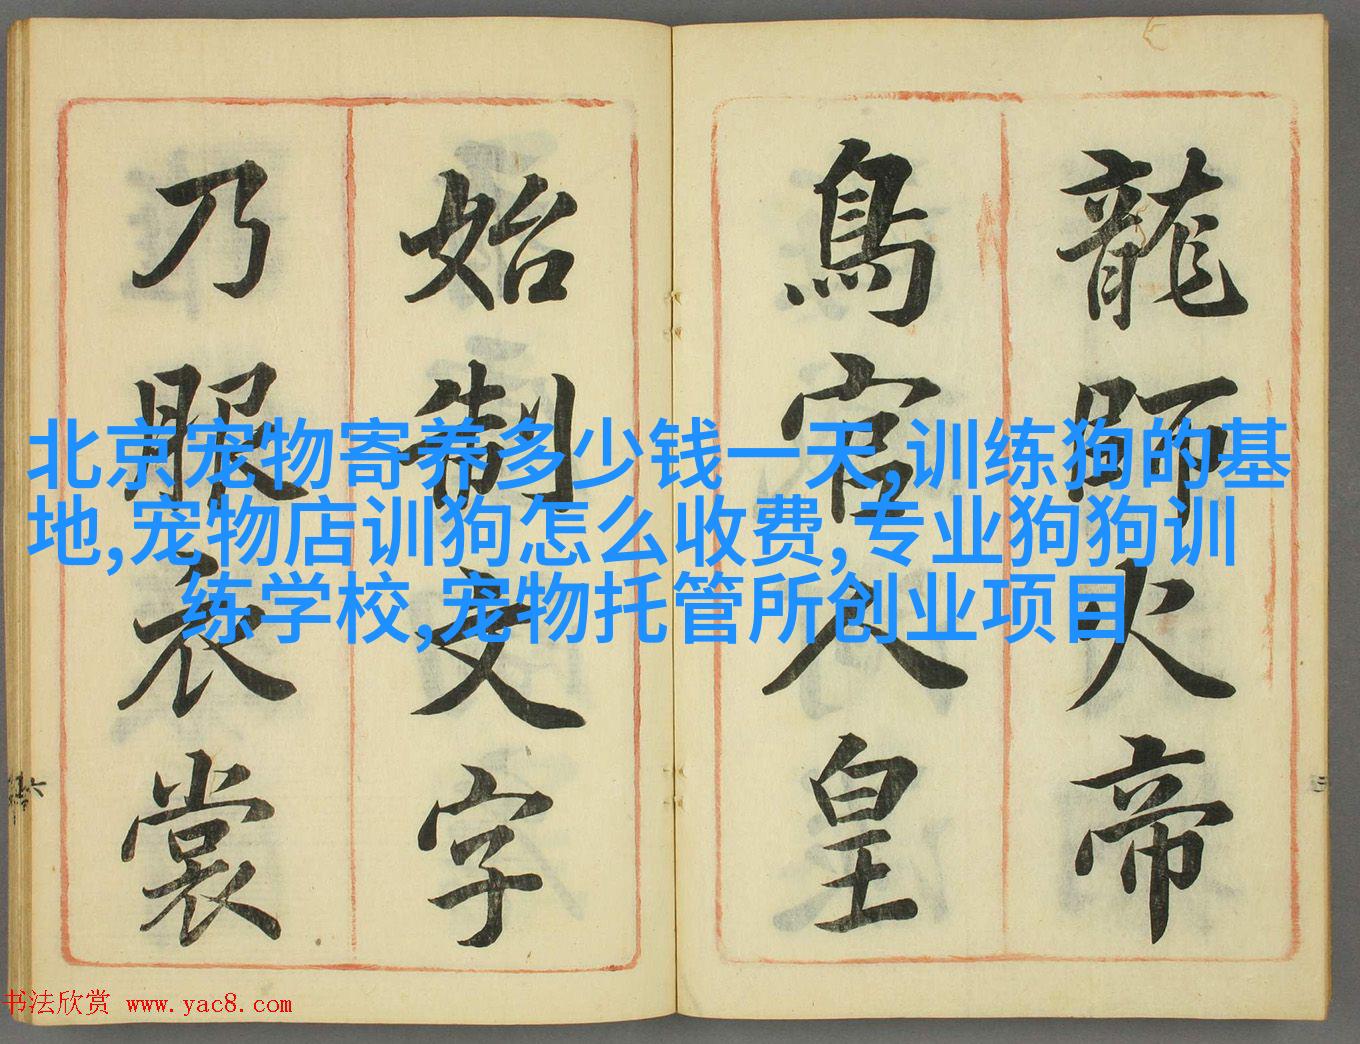 龍師火帝
鳥官人皇
始制文字
乃服衣裳
北京宠物寄养多少钱一天,训练狗的基
地,宠物店训狗怎么收费,专业狗狗训
练学校,宠物托管所创业项目
书法欣赏 www.yac8.com